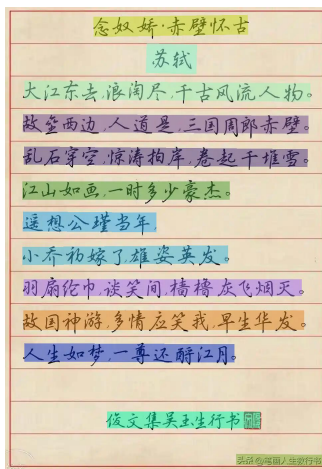 念奴娇·赤壁怀古
苏轼
大江东去,浪淘尽,千古风流人物。
故垒西边,人道是,三国周郎赤壁。
乱石穿空,惊涛拍岸,卷起千堆雪。
江山如画,一时多少豪杰。
遥想公瑾当年,
小乔初嫁了,雄姿英发。
羽扇纶巾,谈笑间,樯橹灰飞烟灭。
故国神游,多情应笑我,早生华发。
人生如梦,一尊还酹江月。
俊文集吴玉生行书